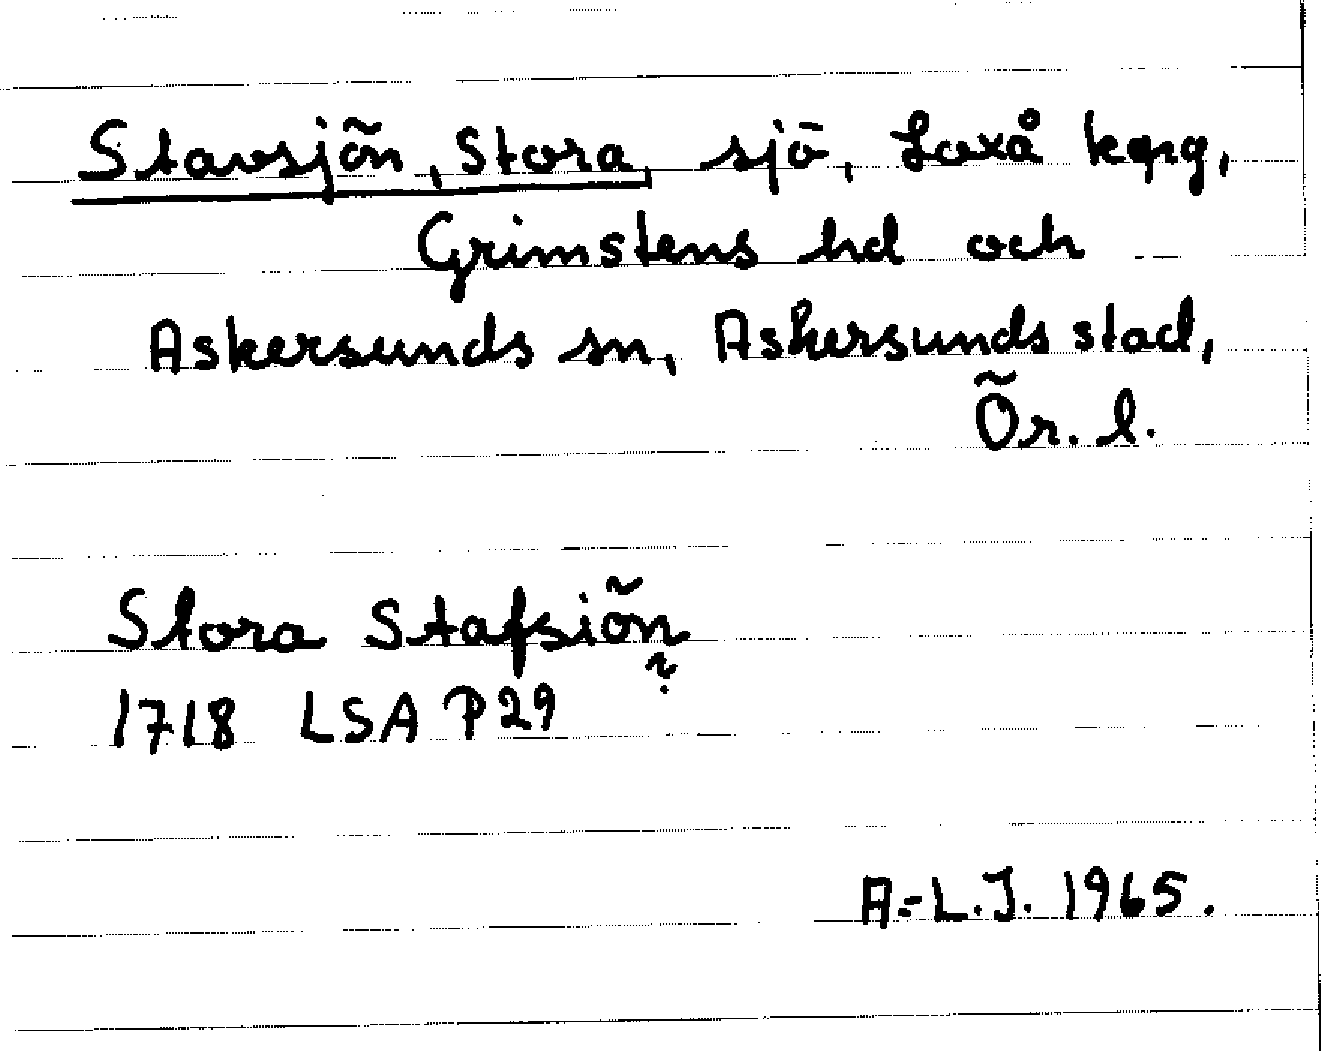 Stavsjön, Stora, sjö, Laxå kpg,
Grimstens hd och
Askersunds sn, Askersunds stad,
Ör. l.
Stora Stafsiön
?
1718 LSA P29
A.-L.J. 1965.